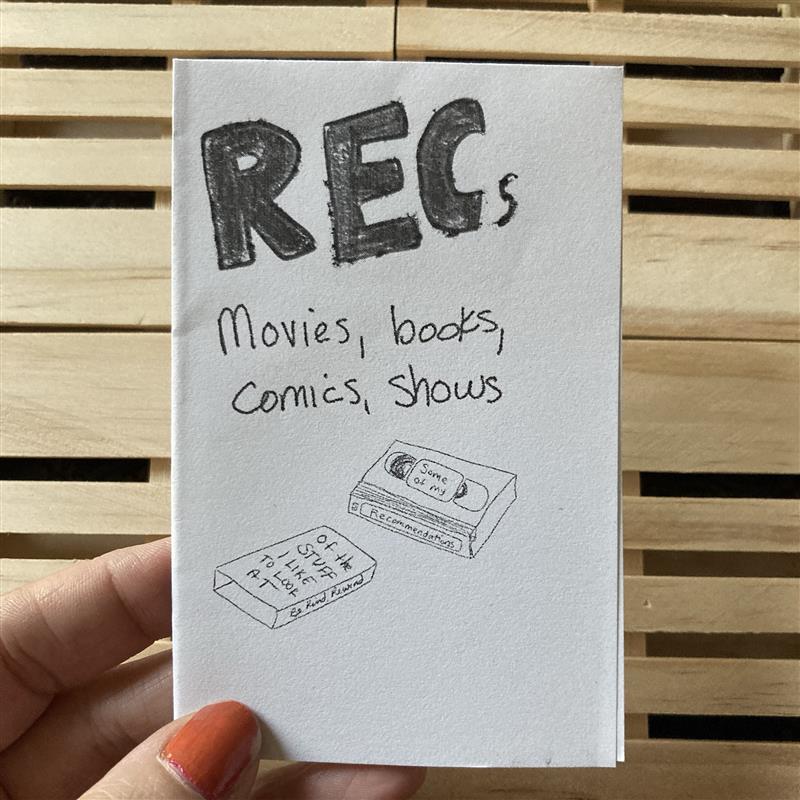 RECs
Movies, books,
comics, shows
Some
of my
Recommendations
Of the
STUFF
I LIKE
TO LOOK
AT
Be Kind, Rewind